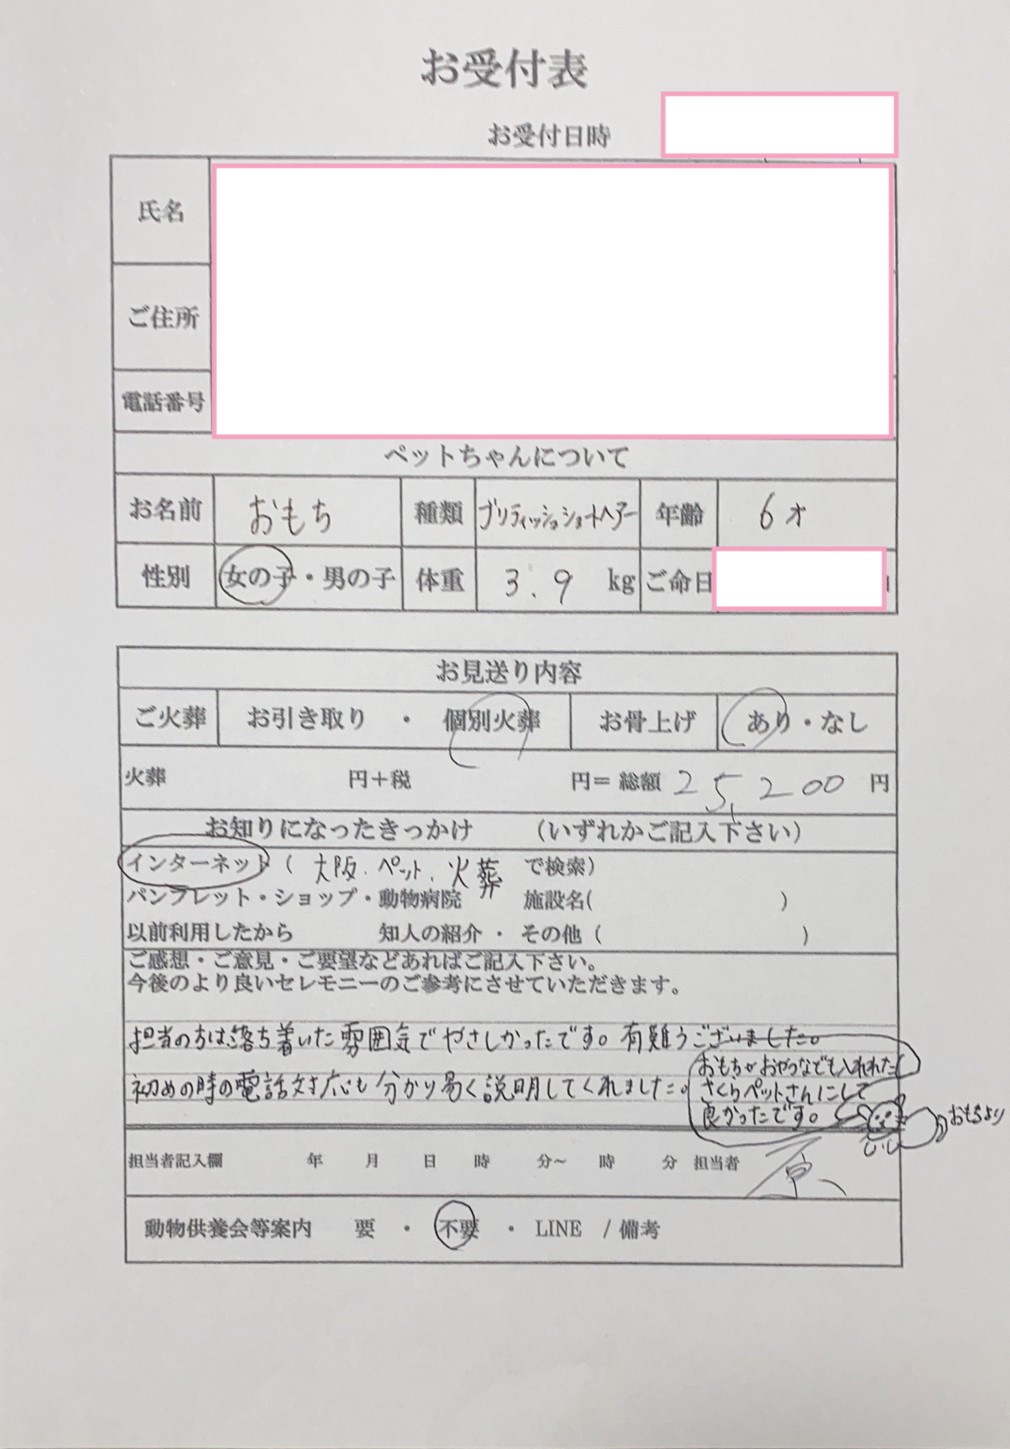 お受付表
お受付日時
氏名
ご住所
電話番号
ペットちゃんについて
お名前 おもち 種類 ブリティッシュショートヘアー 年齢 6才
性別 女の子・男の子 体重 3.9 kg ご命日
お見送り内容
ご火葬 お引き取り ・ 個別火葬 お骨上げ あり・なし
火葬 円+税 円= 総額 25,200 円
お知りになったきっかけ (いずれかご記入下さい)
インターネット ( 大阪.ペット.火葬 で検索)
パンフレット・ショップ・動物病院 施設名( )
以前利用したから 知人の紹介 ・ その他 ( )
ご感想・ご意見・ご要望などあればご記入下さい。
今後のより良いセレモニーのご参考にさせていただきます。
担当の方は落ち着いた雰囲気でやさしかったです。有難うございました。
初めの時の電話対応も分かり易く説明してくれました。
おもちがおやつなども入れれた
さくらペットさんにして
良かったです。
おもちより
担当者記入欄 年 月 日 時 分~ 時 分 担当者 原
動物供養会等案内 要 ・ 不要 ・ LINE / 備考